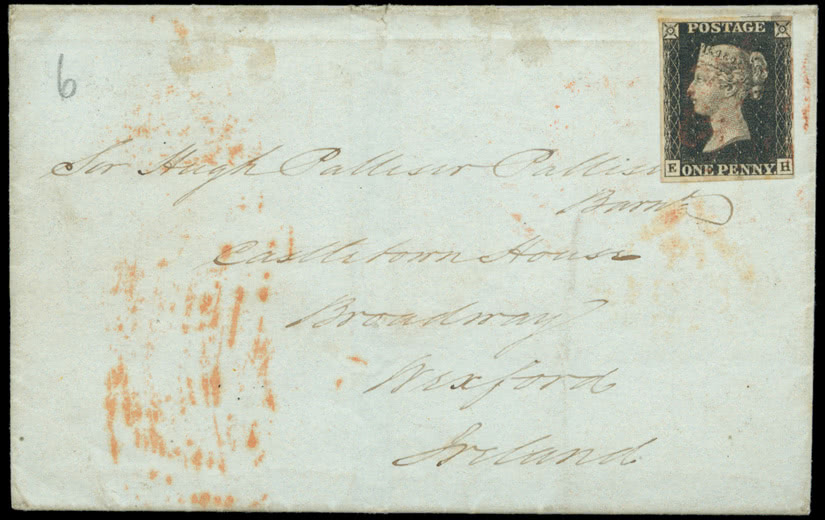 6
POSTAGE
E ONE PENNY. H
Sir Hugh Palliser Pallis
Barnt
Castletown House
Broadway
Wexford
Ireland